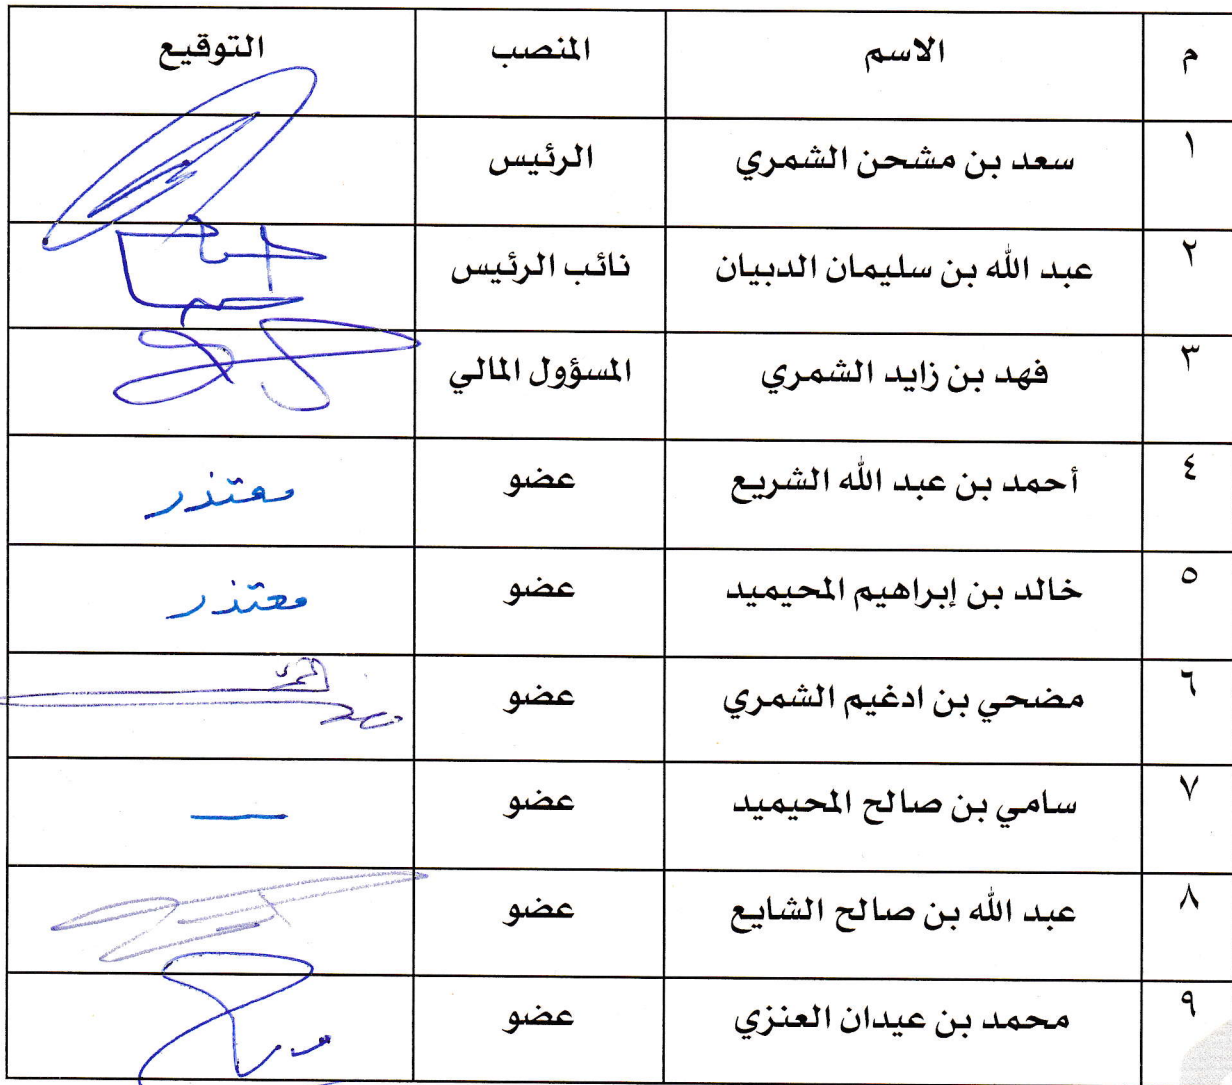 م الاسم المنصب التوقيع
١ سعد بن مشحن الشمري الرئيس
٢ عبد الله بن سليمان الدبيان نائب الرئيس
٣ فهد بن زايد الشمري المسؤول المالي
٤ أحمد بن عبد الله الشريع عضو معتذر
٥ خالد بن إبراهيم المحيميد عضو معتذر
٦ مضحي بن ادغيم الشمري عضو
٧ سامي بن صالح المحيميد عضو —
٨ عبد الله بن صالح الشايع عضو
٩ محمد بن عيدان العنزي عضو